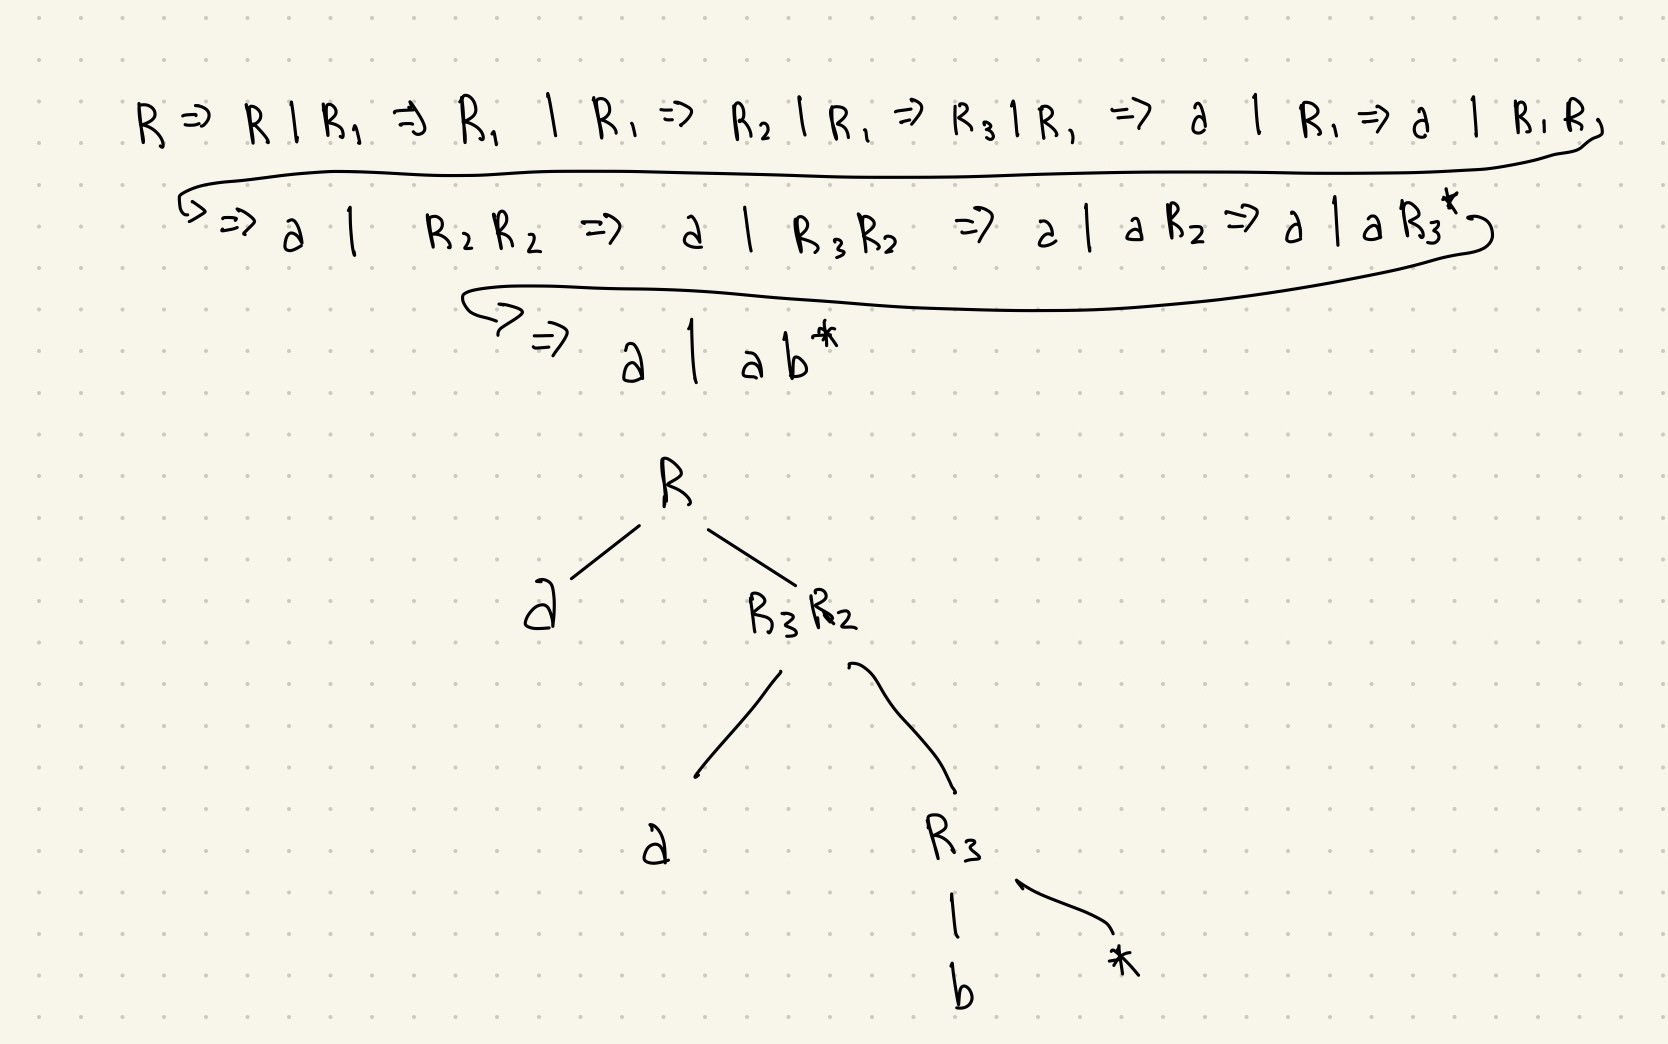 R => R | R₁ => R₁ | R₁ => R₂ | R₁ => R₃ | R₁ => a | R₁ => a | R₁ R₂
=> a | R₂ R₂ => a | R₃ R₂ => a | a R₂ => a | a R₃*
=> a | a b*
R
a R₃ R₂
a R₃
b *